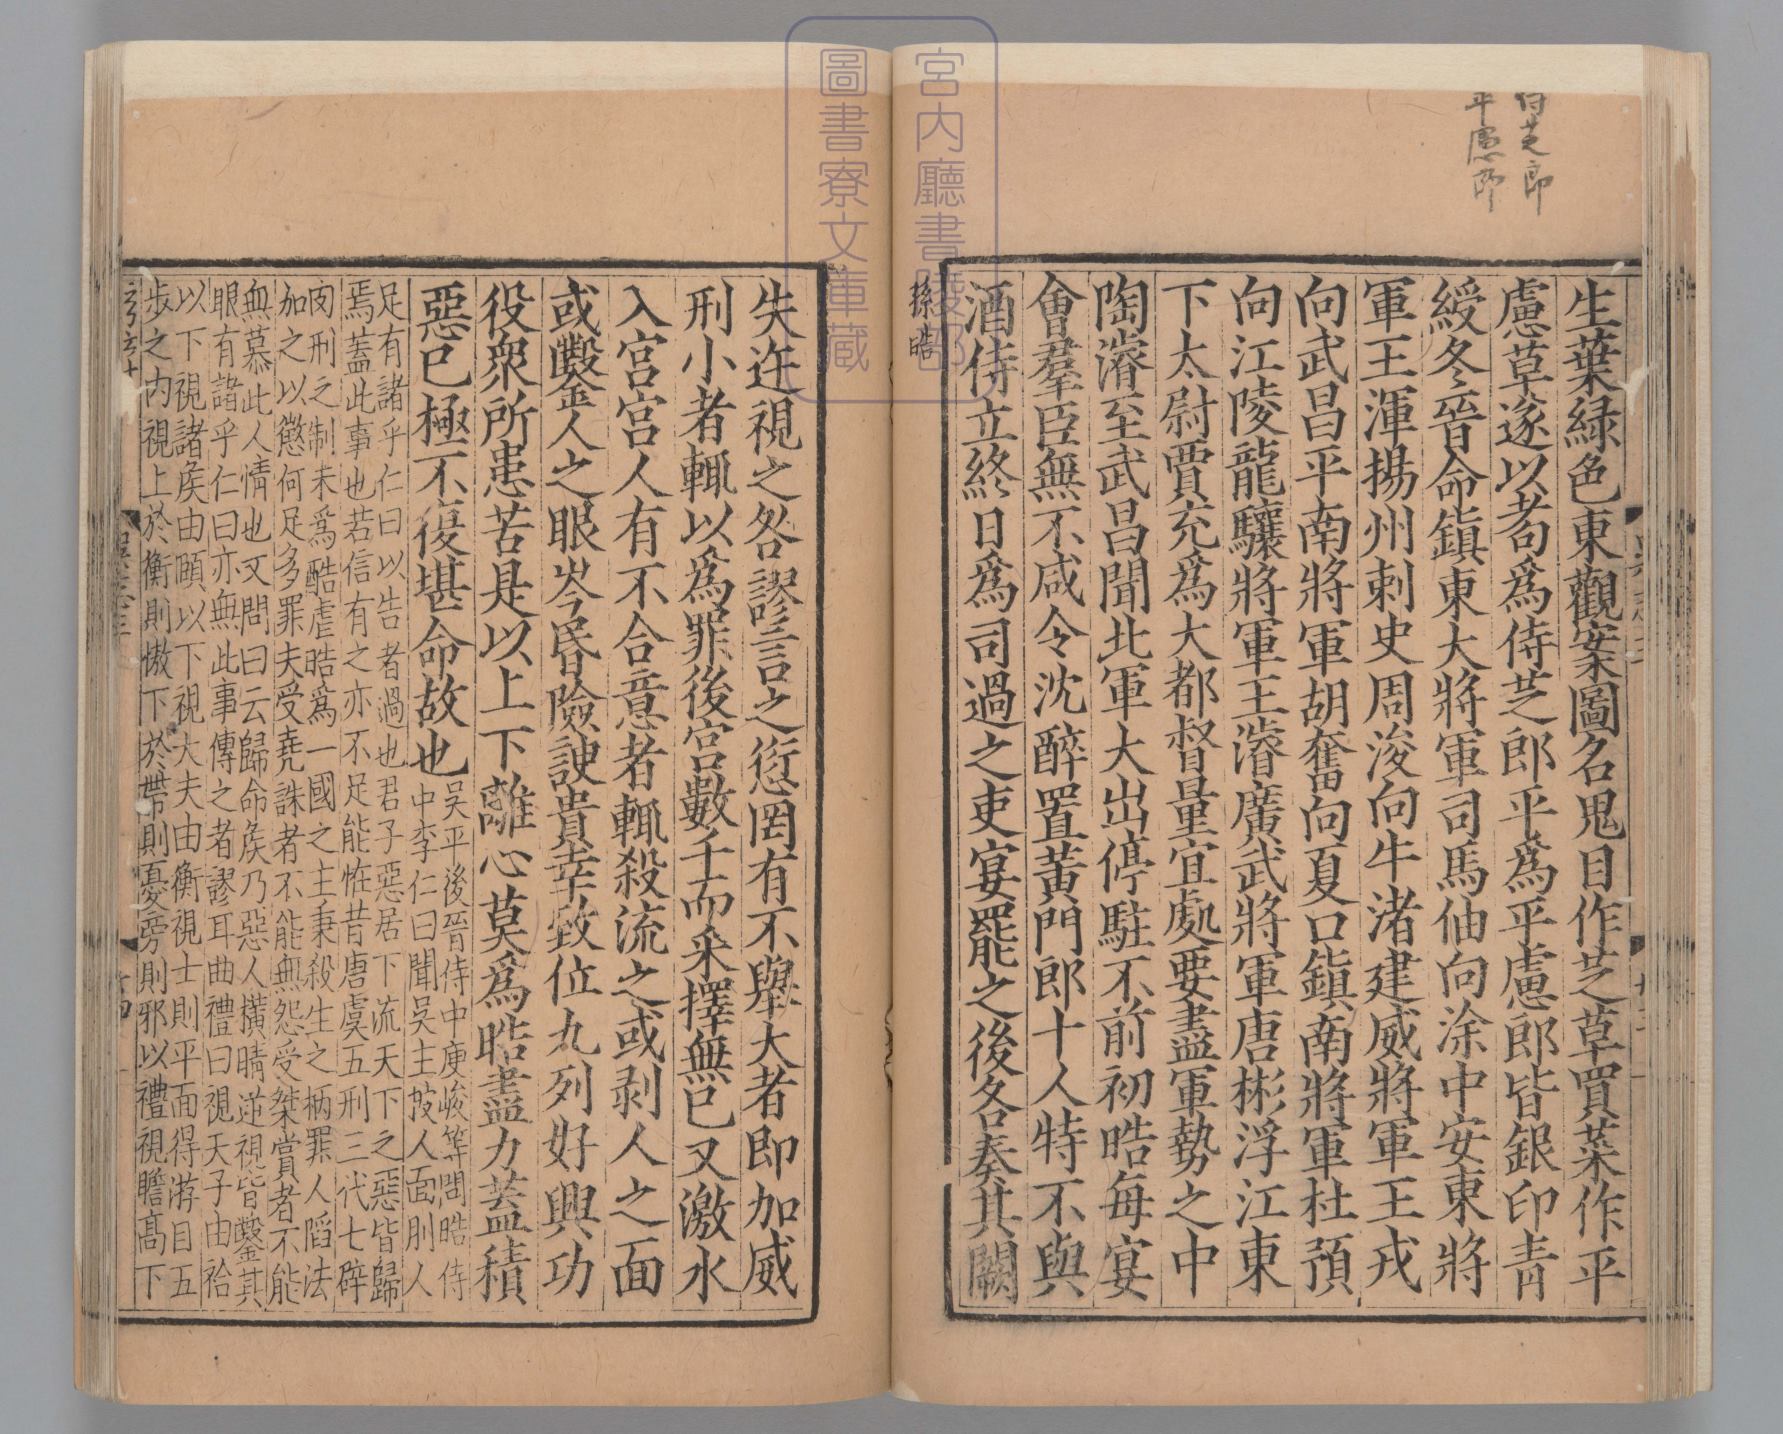 侍芝郎
平慮郎
生葉緑色東觀案圖名鬼目作芝草買菜作平
慮草遂以耇爲侍芝郎平爲平慮郎皆銀印青
綬冬晉命鎮東大將軍司馬伷向涂中安東將
軍王渾揚州刺史周浚向牛渚建威將軍王戎
向武昌平南將軍胡奮向夏口鎮南將軍杜預
向江陵龍驤將軍王濬廣武將軍唐彬浮江東
下太尉賈充爲大都督量宜處要盡軍勢之中
陶濬至武昌聞北軍大出停駐不前初晧每宴
會羣臣無不咸令沈醉置黃門郎十人特不與
酒侍立終日爲司過之吏宴罷之後各奏其闕
孫晧
失迕視之咎謬言之愆罔有不舉大者即加威
刑小者輒以爲罪後宮數千而采擇無已又激水
入宮宮人有不合意者輒殺流之或剥人之面
或鑿人之眼岑昬險諛貴幸致位九列好興功
役衆所患苦是以上下離心莫爲晧盡力蓋積
惡已極不復堪命故也
吳平後晉侍中庾峻等問晧侍
中李仁曰聞吳主披人面刖人
足有諸乎仁曰以告者過也君子惡居下流天下之惡皆歸
焉蓋此事也若信有之亦不足能恠昔唐虞五刑三代七辟
肉刑之制未爲酷虐晧爲一國之主秉殺生之柄罪人䧟法
加之以懲何足多罪夫受堯誅者不能無怨受桀賞者不能
無慕此人情也又問曰云歸命矦乃惡人橫睛逆視皆鑿其
眼有諸乎仁曰亦無此事傳之者謬耳曲禮曰視天子由袷
以下視諸矦由頤以下視大夫由衡視士則平面得游目五
步之内視上於衡則慠下於帶則憂旁則邪以禮視瞻高下
宮内廳書陵部
圖書寮文庫藏